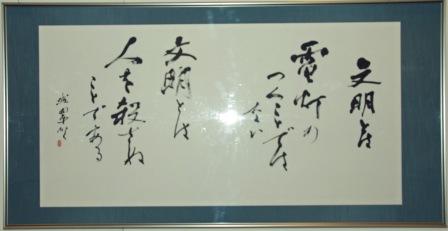 文明とは
電灯の
つくことでは
ない
文明とは
人を殺さぬ
ことである